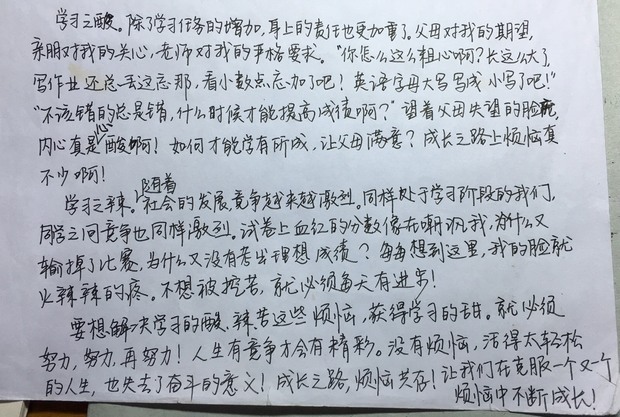 学习之酸。除了学习任务的增加,身上的责任也更加重了。父母对我的期望,
亲朋对我的关心,老师对我的严格要求。“你怎么这么粗心啊?长这么大了,
写作业还总丢这忘那,看小数点忘加了吧!英语字母大写写成小写了吧!”
“不该错的总是错,什么时候才能提高成绩啊?”望着父母失望的脸庞,
内心真是心酸啊!如何才能学有所成,让父母满意?成长之路上烦恼真
不少啊!
学习之辣。随着社会的发展,竞争越来越激烈。同样处于学习阶段的我们,
同学之间竞争也同样激烈。试卷上血红的分数像在嘲讽我,为什么又
输掉了比赛,为什么又没有考出理想成绩?每每想到这里,我的脸就
火辣辣的疼。不想被挖苦,就必须每天有进步!
要想解决学习的酸、辣、苦这些烦恼,获得学习的甜。就必须
努力,努力,再努力!人生有竞争才会有精彩。没有烦恼,活得太轻松
的人生,也失去了奋斗的意义!成长之路,烦恼共存!让我们在克服一个又一个
烦恼中不断成长!